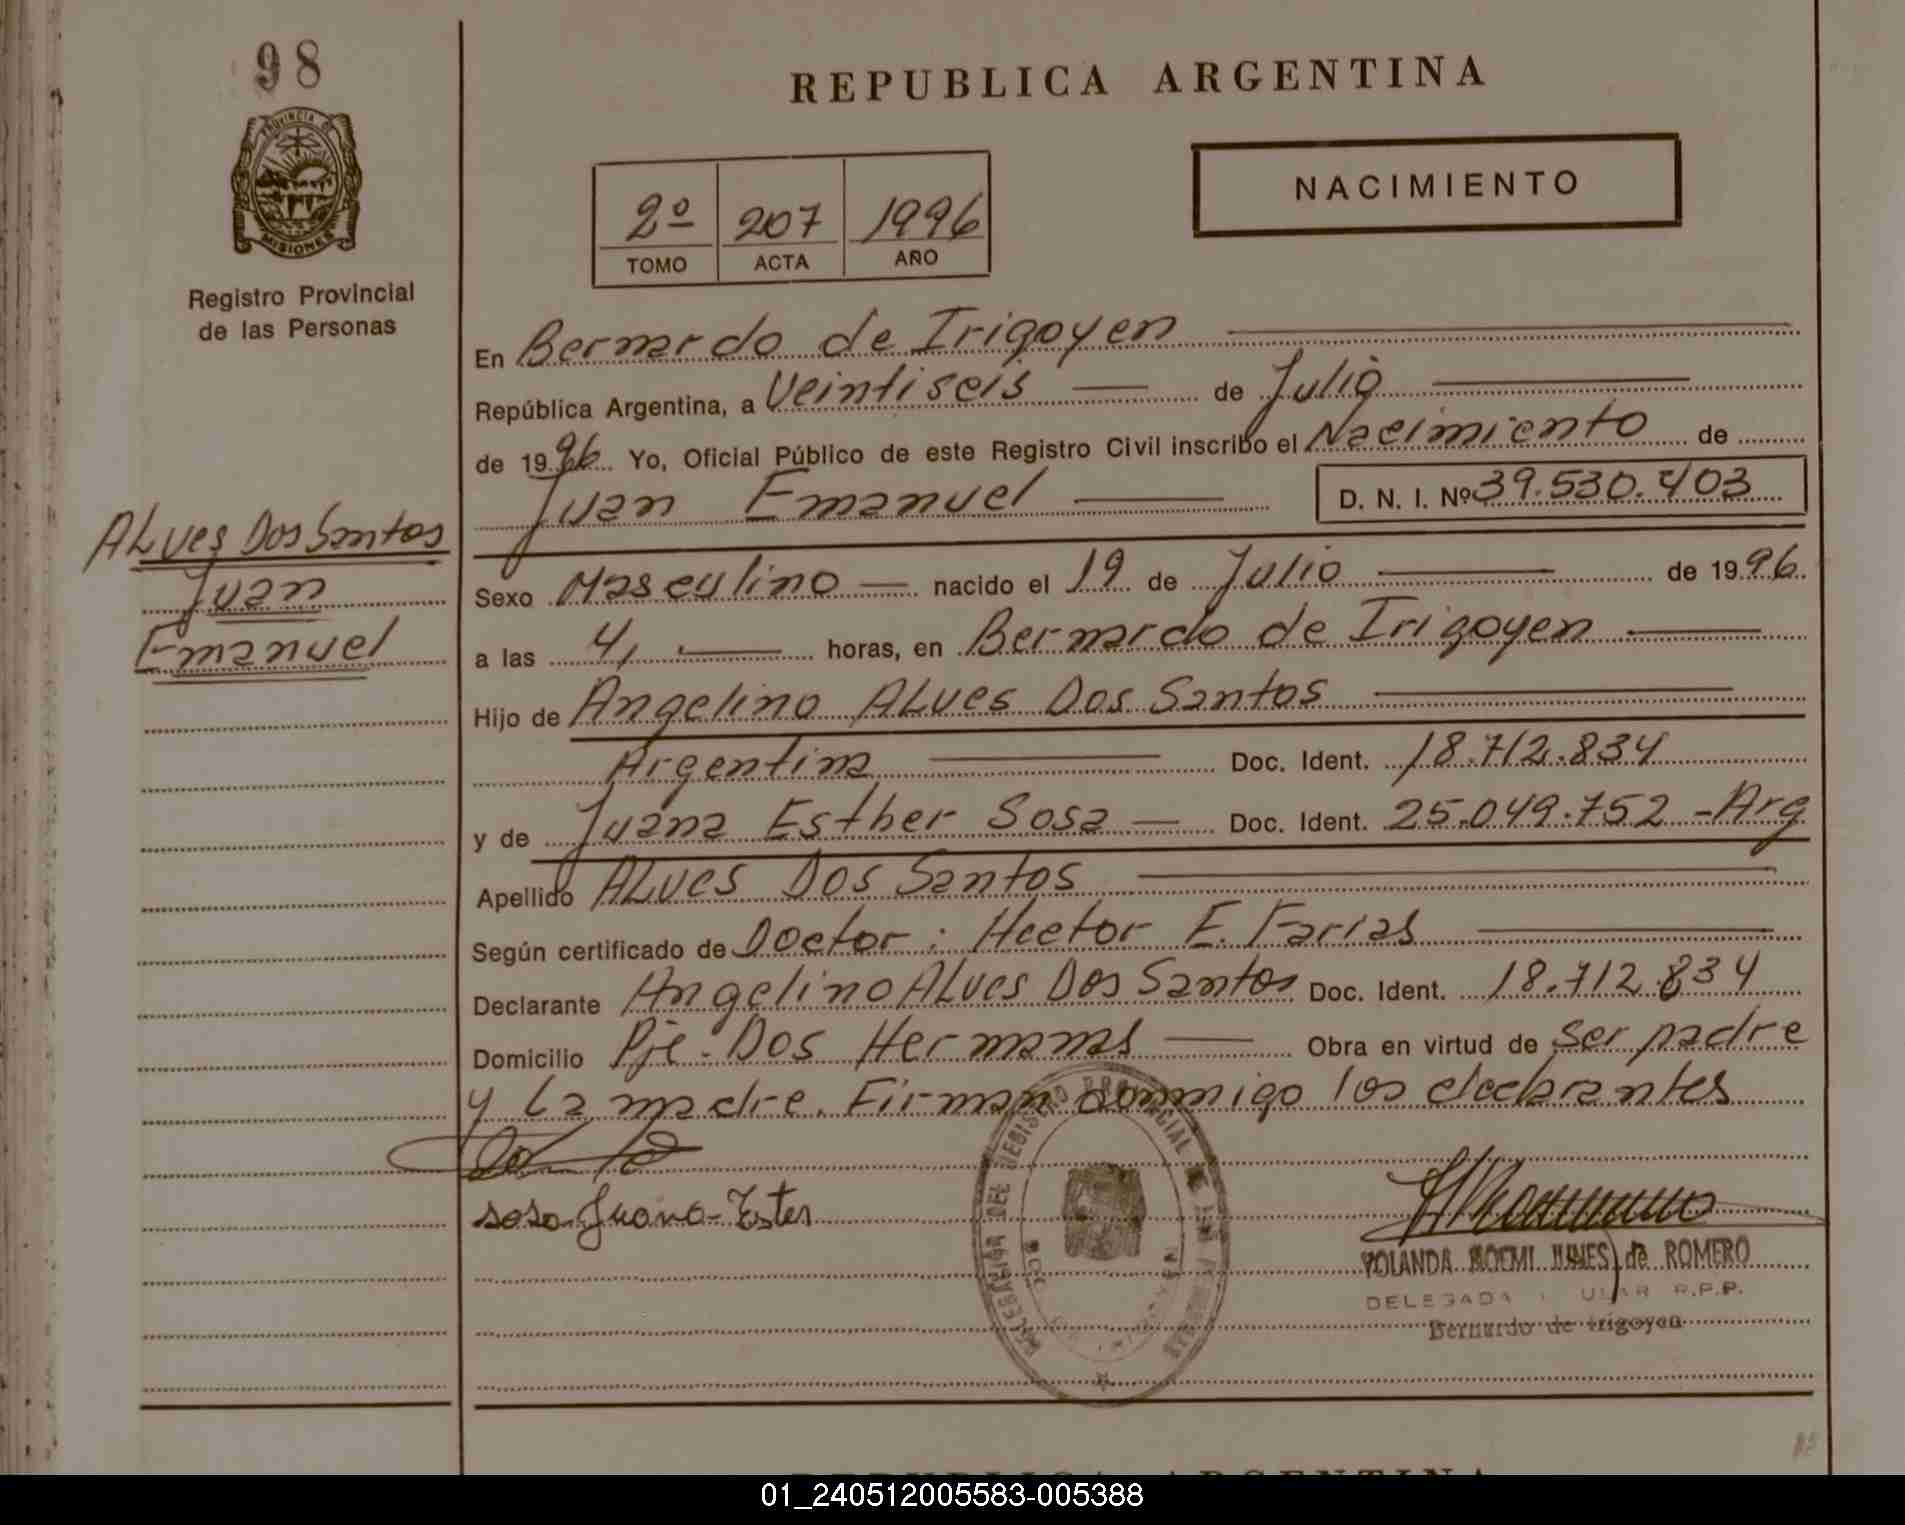 98
PROVINCIA DE
MISIONES
Registro Provincial
de las Personas
REPUBLICA ARGENTINA
NACIMIENTO
2º 207 1996
TOMO ACTA AÑO
En Bernardo de Irigoyen
República Argentina, a Veintiseis de Julio
de 1996 Yo, Oficial Público de este Registro Civil inscribo el Nacimiento de
Juan Emanuel D. N. I. Nº 39.530.403
ALves Dos Santos
Juan
Emanuel
Sexo Masculino nacido el 19 de Julio de 1996.
a las 4, horas, en Bernardo de Irigoyen
Hijo de Angelino ALves Dos Santos
Argentina Doc. Ident. 18.712.834
y de Juana Esther Sosa Doc. Ident. 25.049.752 - Arg
Apellido ALves Dos Santos
Según certificado de Doctor: Hector E. Farias
Declarante Angelino ALves Dos Santos Doc. Ident. 18.712.834
Domicilio Pje. Dos Hermanas Obra en virtud de ser padre
y La madre. Firman conmigo los declarantes
sosa Juana-Ester
DELEGACION DEL REGISTRO PROVINCIAL DE LAS PERSONAS
YOLANDA NOEMI de ROMERO
DELEGADA R.P.P.
Bernardo de Irigoyen
REPUBLICA ARGENTINA
01_240512005583-005388